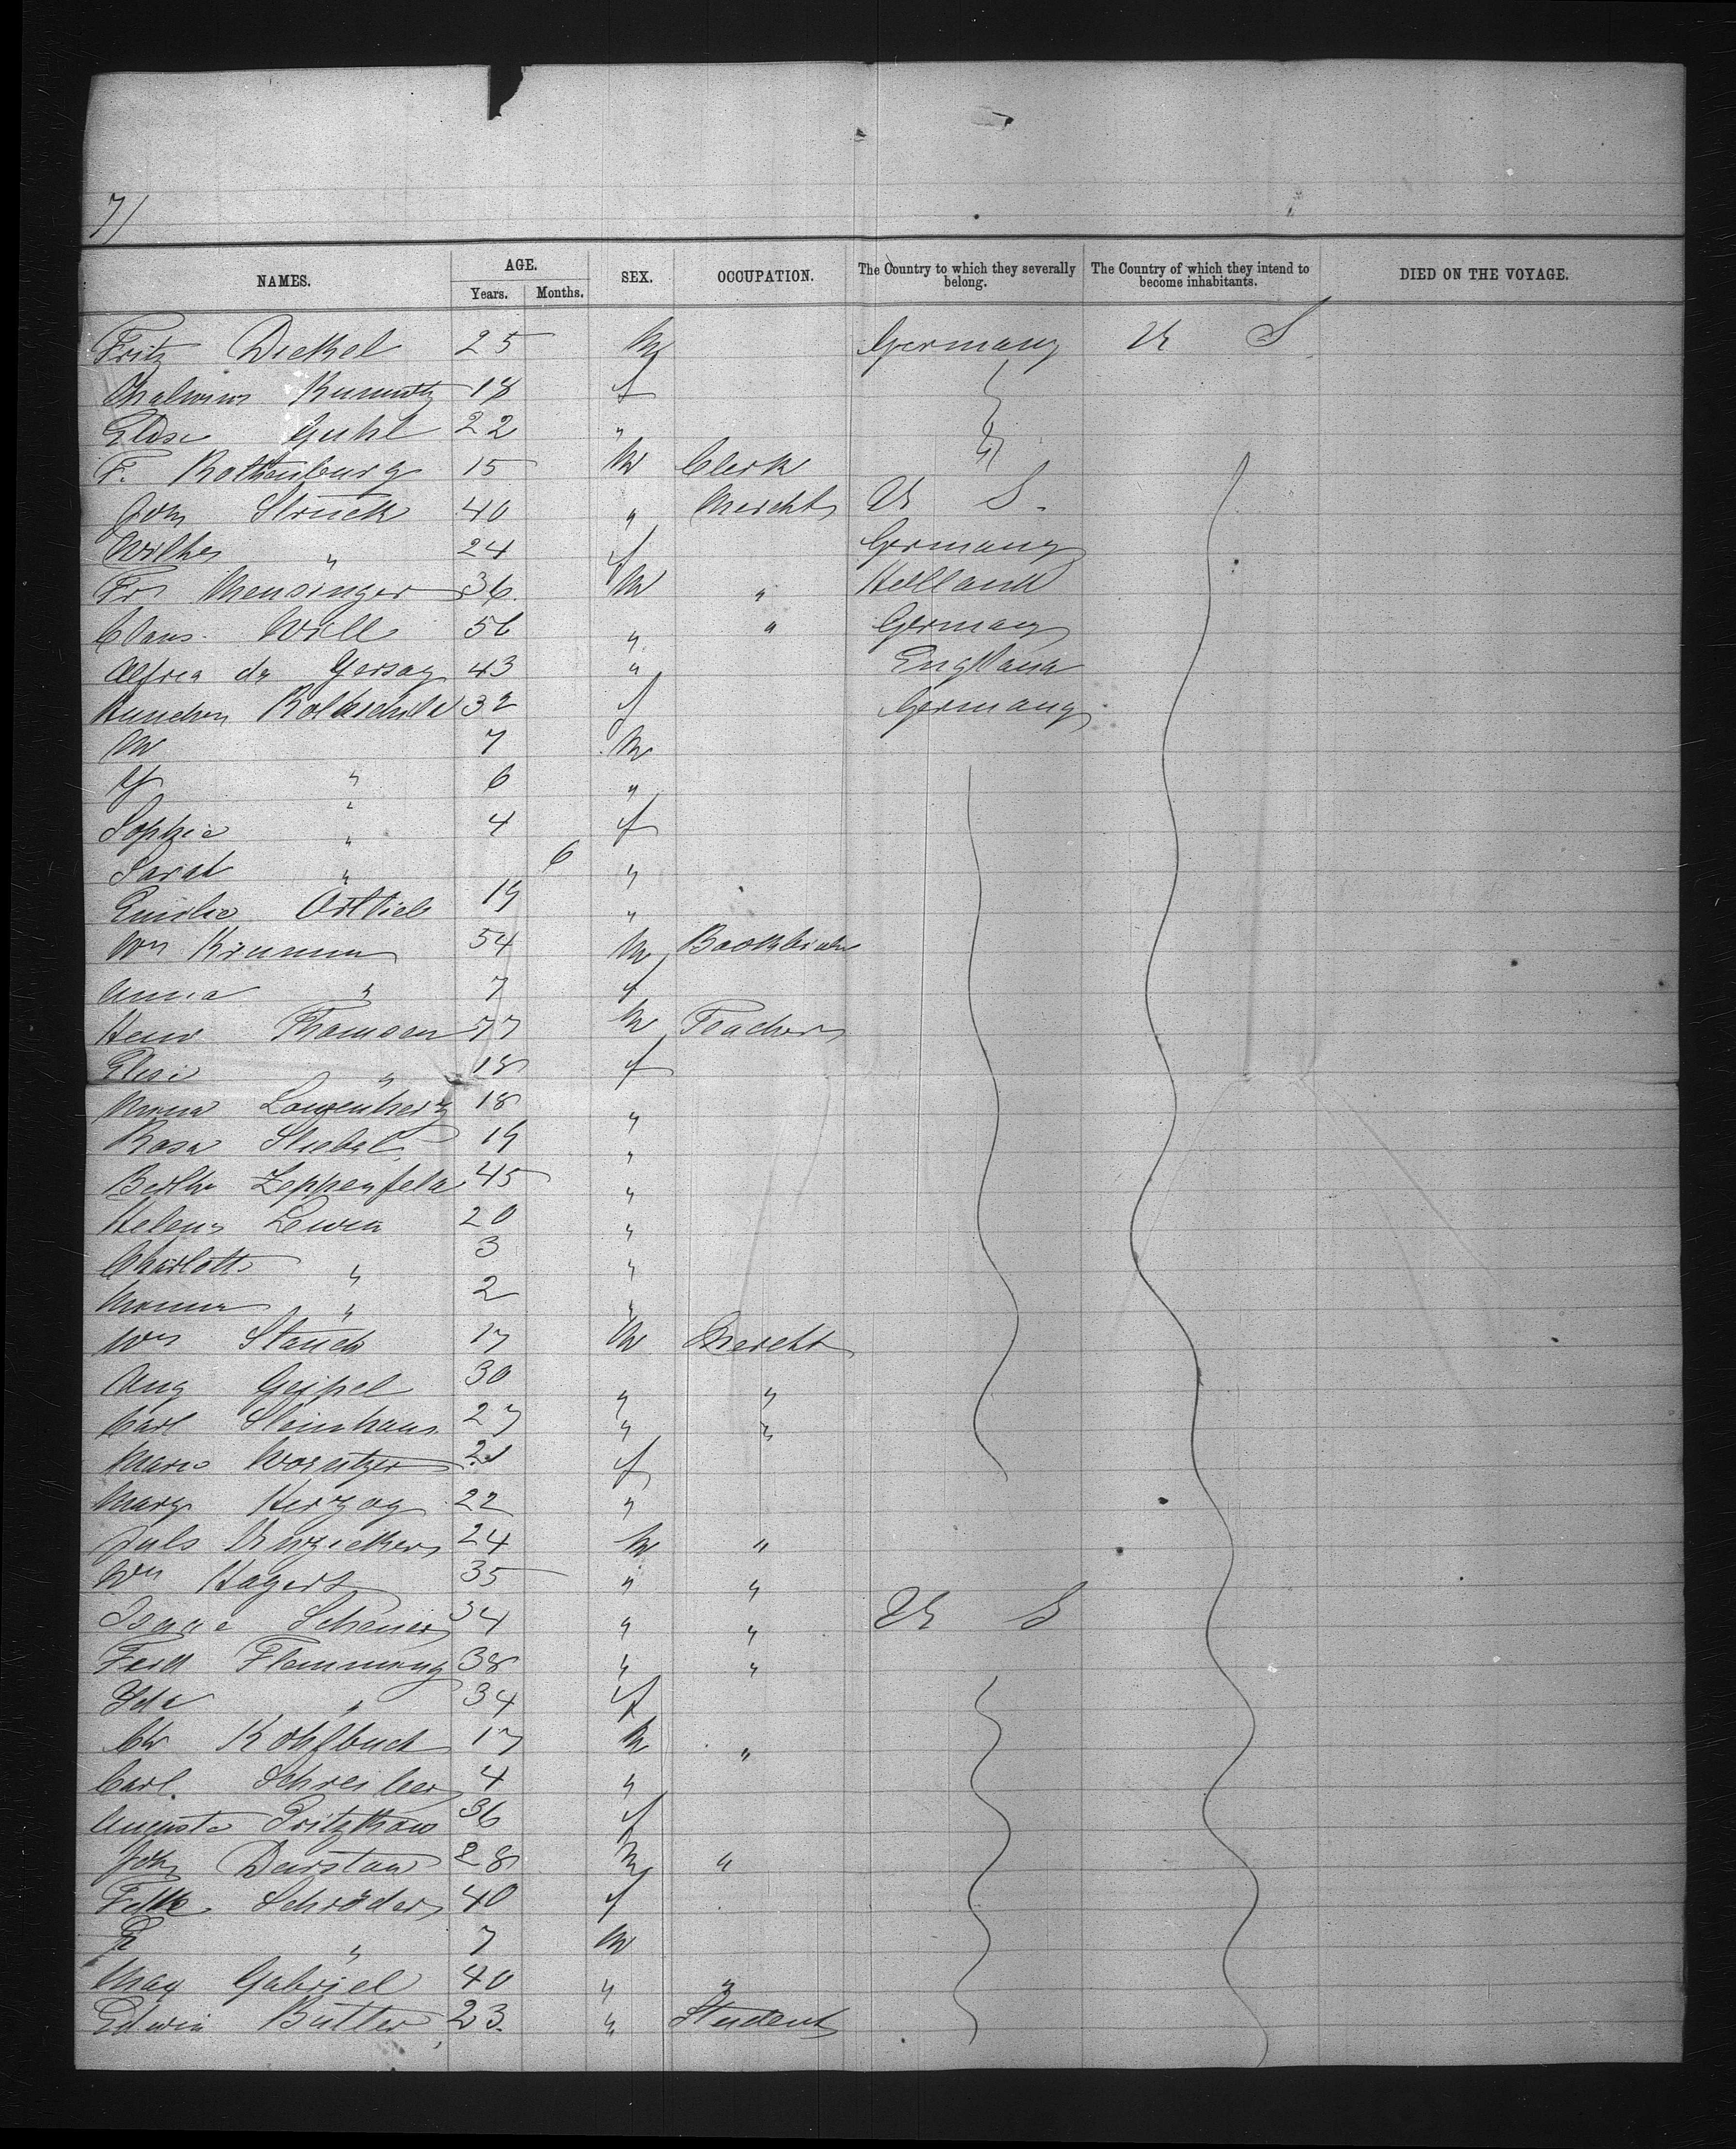 7/
NAMES. AGE. SEX. OCCUPATION. The Country to which they severally belong. The Country of which they intend to become inhabitants. DIED ON THE VOYAGE.
Years. Months.
Fritz Dickel 25 M Germany U S
18 f
Elise Guhl 22 "
F. Rothenburg 15 M Clerk
Joh Struck 40 " Mercht U S.
Wilhe " 24 f Germany
Fr Mensinger 36 M " Holland
Claus Will 56 " " Germany
Alfred de Gersay 43 " England
Rothschild 32 f Germany
M 7 M
" 6 "
Sophie " 4 f
Sarah " 6 "
Emilie Ortlieb 19 "
Wm Krumm 54 M Bookbinder
Anna " 7 f
Henr Thomsen 57 M Teacher
Elise " 18 f
Anna Langenberg 18 "
Rosa Stiebel 19 "
Bertha Zeppenfeld 45 "
Helene Lewin 20 "
Charlotte " 3 "
" 2 "
Wm Stauch 17 M Mercht
Aug Geipel 30 " "
Carl Steinhaus 27 " "
Marie 21 f
Marg Herzog 22 "
Juls 24 M "
Wm Hagert 35 " "
Isaac Scheuer 34 " " U S
Ferd Flemming 38 " "
Ida " 34 f
Chr 17 M "
Carl Schreiber 4 "
Auguste Pritzkow 36 f
Joh Derstau 28 M "
Schröder 40 f
E " 7 M
Max Gabriel 40 " "
Edwin Butler 23. " Student